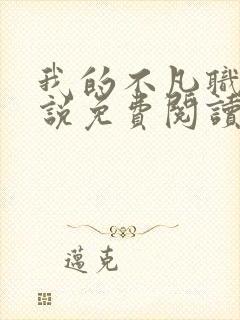 我的不凡職
說免費閱讀
邁克